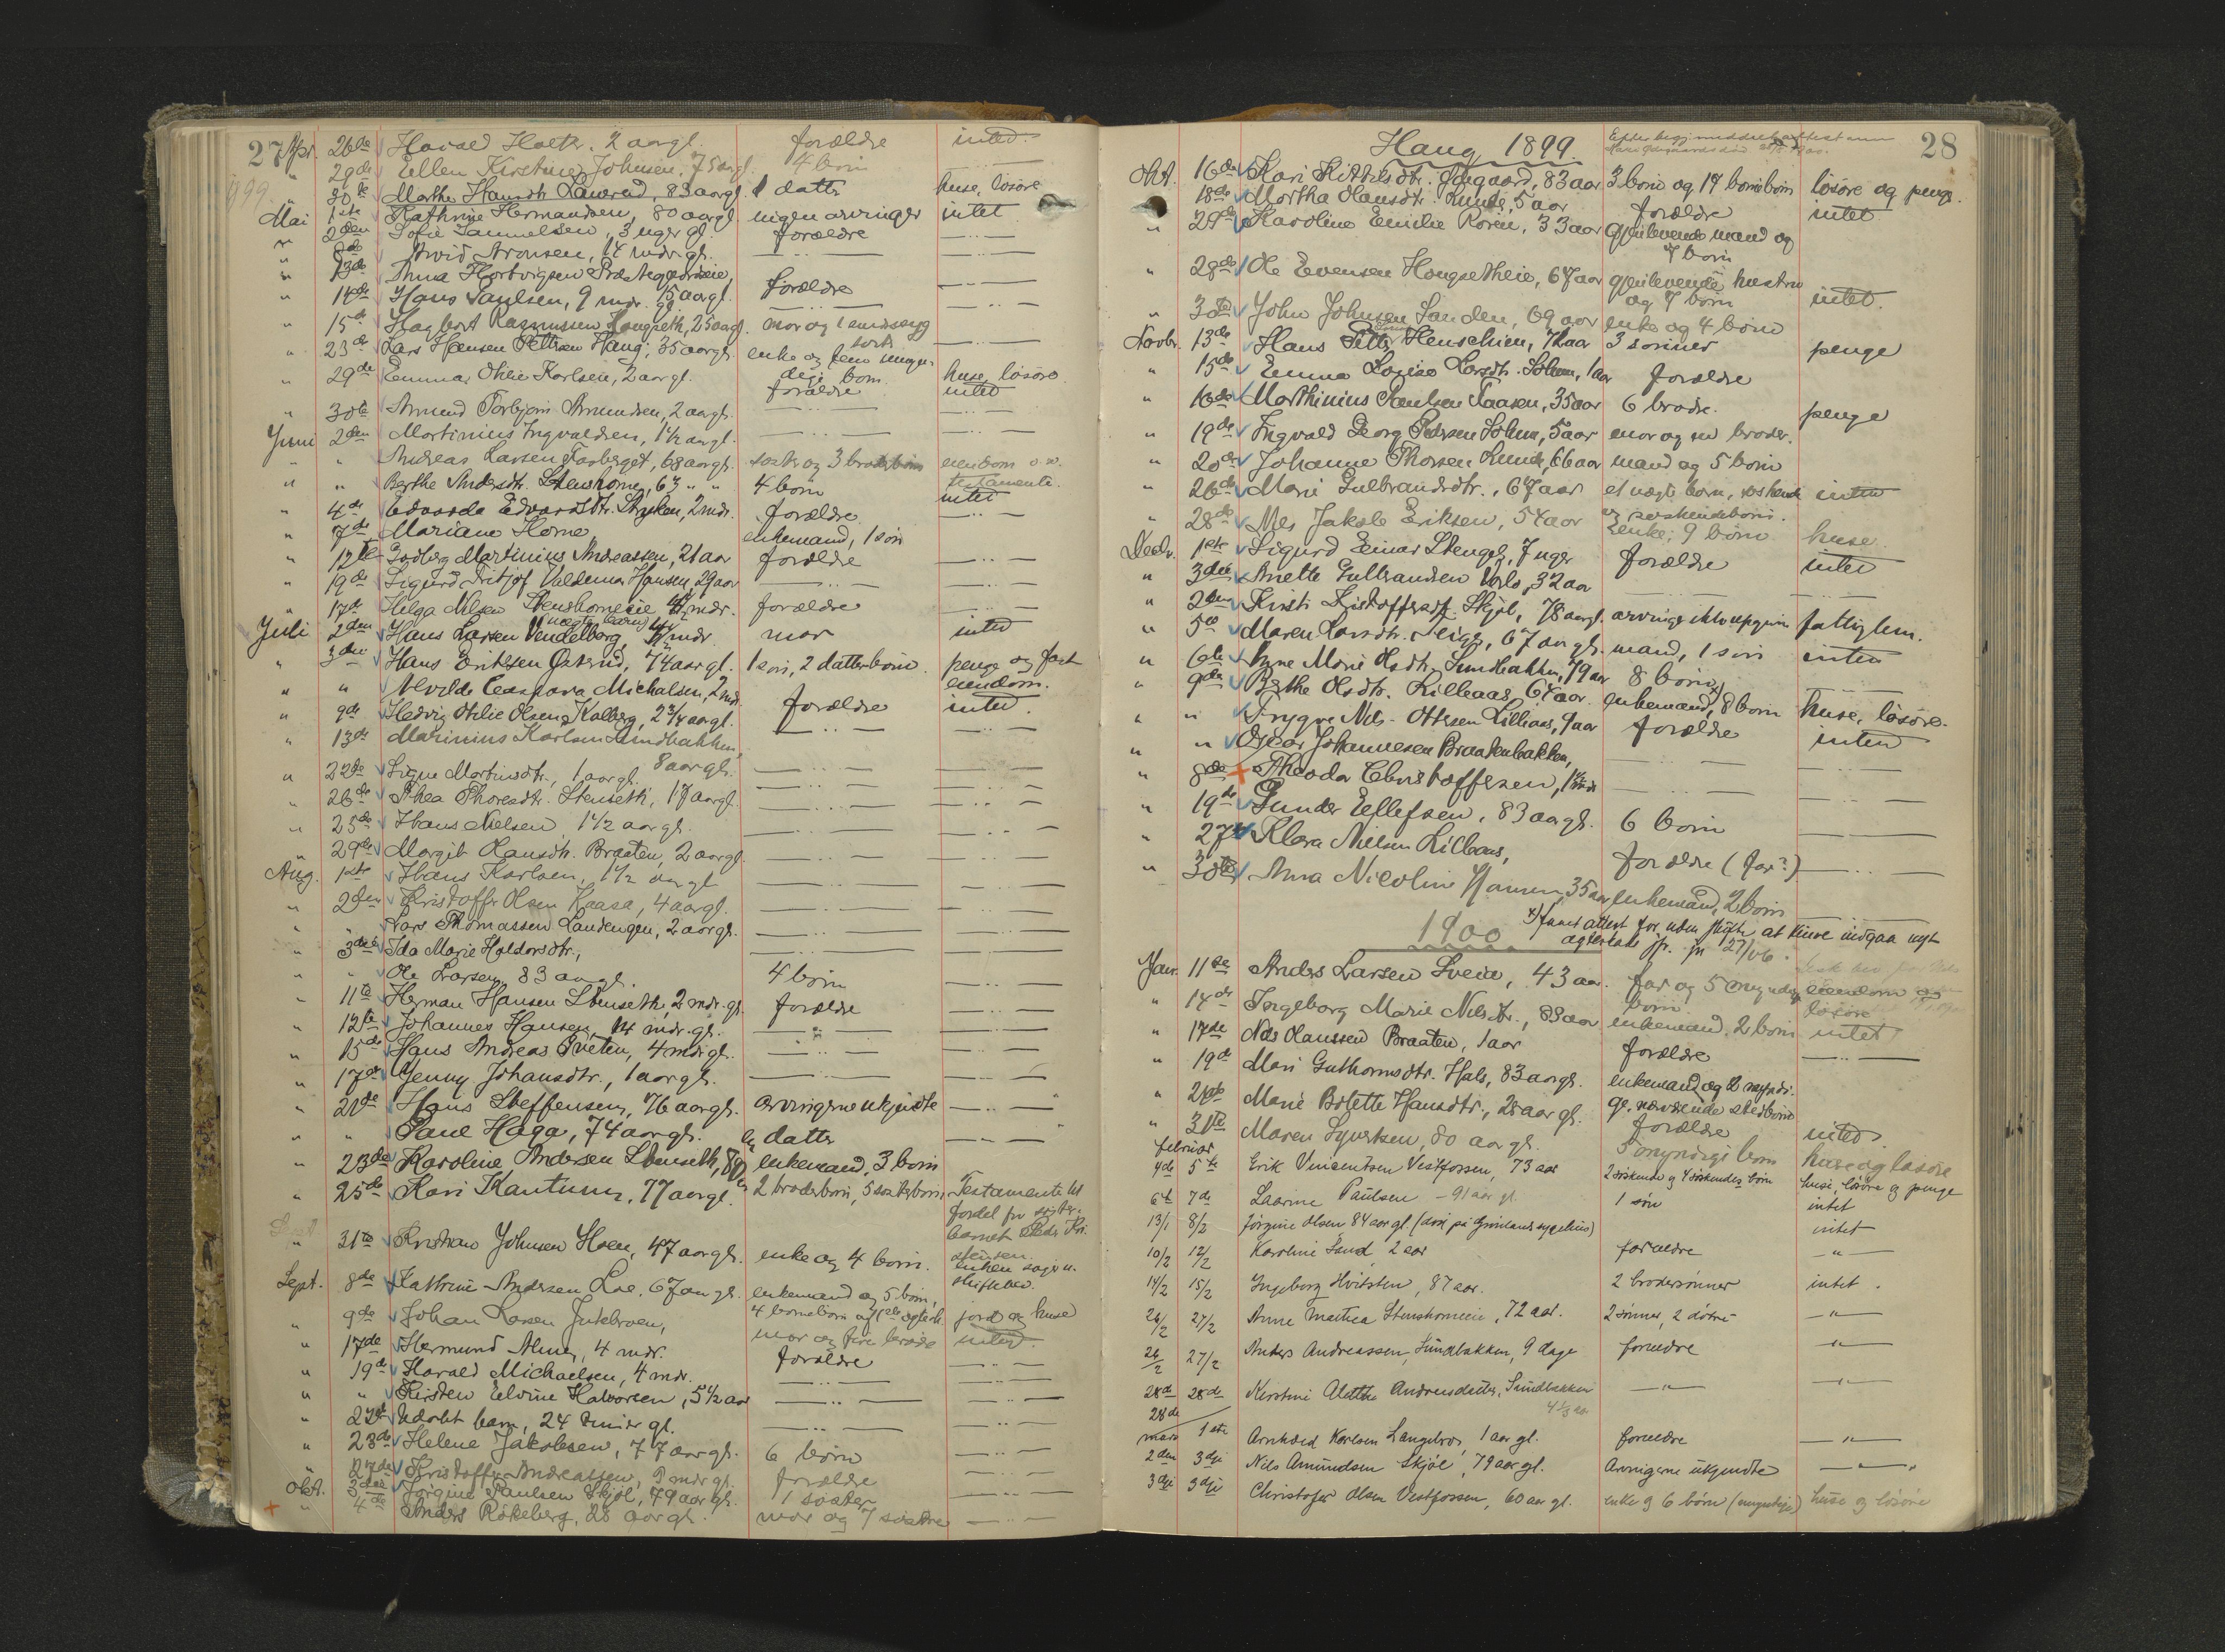 27 Apr. 26de Harald Holth, 2 aargl. forældre intet
1899 " 29de Ellen Kirstine Johnsen, 75 aargl. 4 børn
" 30te Marthe Hansdtr. 83 aargl. 1 datter huse, løsøre
Mai 1ste Kathrine Hermandsen, 80 aargl. ingen arvinger intet
" 2den Sofie Samuelsen, 3 uger gl. forældre — " —
" 8de Arvid Aronsen, 14 mdr. gl. — " —
" 13de Anna Hartvigsen
" 14de Hans Paulsen, 9 mdr. forældre — " —
15 aargl.
" 15de Hagbart Rasmussen Hougseth, 25 aargl. mor og 1 — " —
" 23de Lars Hansen Pettersen Haug, 35 aargl. enke og fem umyn- — " —
dige børn huse, løsøre
" 29de Emma Othilie Karlsen, 2 aargl. forældre intet
" 30te Amund Torbjørn Amundsen, 2 aargl. — " — — " —
Juni 2den Martinius Ingvaldsen, 1 1/2 aargl. — " — — " —
" " Andreas Larsen 68 aargl. søster og 3 broderbørn eiendom
" " Berthe Andersdtr. Stenshorne, 63 " " 4 børn testamente
intet
" 4de Edvarda Edvardsdtr. 2 mdr. forældre — " —
" 7de Mariane Horne enkemand, 1 søn
" 12te Godberg Martinius Andreassen, 21 aar forældre — " —
" 19de Sigurd Fritjof Valdemar Hansen, 29 aar — " — — " —
" 17de Helga Nilsen mdr. forældre — " —
Juli 2den Hans Larsen Vendelborg, mdr. mor intet
" 3die Hans Eriksen 74 aargl. 1 søn, 2 datterbørn penge og fast
eiendom.
" " Alvilde Michalsen, 2 mdr. forældre intet
" 9de Hedvig Othilie Olsen Kolberg, 2 3/4 aargl. — " —
" 13de Marinius Karlsen Sundbakken,
8 aar gl. — " —
" 22de Signe Martinsdtr., 1 aar gl. — " — — " —
" 26de Thea Thoresdtr. Stenseth, 17 aargl. — " — — " —
" 25de Hans Nielsen, 1 1/2 aar gl. — " — — " —
" 29de Margit Hansdtr. Braaten, 2 aargl. — " — — " —
Aug. 1ste Hans Karlsen, 1 1/2 aar gl — " — — " —
" 2den Kristoffer Olsen Kaasa, 4 aargl. — " — — " —
" Lars Thomassen Landengen, 2 aargl. — " — — " —
" 3die Ida Marie Haldorsdtr., — " — — " —
" " Ole Larsen, 83 aargl. 4 børn — " —
" 11te Herman Hansen Stenseth, 2 mdr. gl. forældre — " —
" 12te Johannes Hansen, 14 mdr. gl. — " — — " —
" 15de Hans Andreas Tveten, 4 mdr gl. — " — — " —
" 17de Jenny Johansdtr., 1 aar gl. — " — — " —
" 21de Hans Steffensen, 76 aargl. arvingerne ukjendte — " —
" " Paul Haga, 74 aargl. en datter — " —
" 23de Karoline Andersen Stenseth, enkemand, 3 børn
" 25de Kari Kantum, 77 aargl. 2 broderbørn, 5 søsterbørn, Testamente til
fordel for søster-
barnet Peder Kri-
stensen.
" 31te Kristian Johnsen Hoen, 47 aargl. enke og 4 børn.
Sept. 8de Kathrine Andersen Loe, 67 aar gl. enkemand og 5 børn,
4 børnebørn
" 9de Johan Larsen jord og huse
mor og fire brødre intet
" 17de Hermund 4 mdr. forældre — " —
" 19de Harald Michaelsen, 4 mdr. — " — — " —
" " Kirsten Elvine Halvorsen, 5 1/2 aar — " — — " —
" 22de Udøbt barn, 24 timer gl. — " — — " —
" 23de Helene Jakobsen, 77 aargl. 6 børn — " —
" 27de Kristoffer Andreassen, 9 mdr gl. forældre — " —
Okt. 3die Jørgine Paulsen Skjøl, 79 aar gl. 1 søster — " —
" 4de Anders Røkeberg, 28 aar gl. mor og 7 søstre — " —
Haug 1899. 28
Okt. 16de Kari Kittelsdtr. 83 aar 3 børn og 17 børnebørn løsøre og penge.
" 18de Martha Hansdtr. Lunde, 5 aar forældre intet
" 29de Karoline Emilie Rosén, 33 aar gjenlevende mand og
7 børn
" 28de Ole Evensen Hougsetheie, 67 aar gjenlevende hustru
og 7 børn intet.
" 30te John Johnsen Sanden, 69 aar enke og 4 børn
Novbr. 13de Hans Petter Henschien, 72 aar 3 sønner penge
" 15de Emma Lovise Larsdtr. Solum, 1 aar forældre
" 16de Marthinius Paulsen Taasen, 35 aar 6 brødre. penge
" 19de Ingvald Georg Pedersen Solum, 5 aar mor og en broder.
" 20de Johanne Thorsen Lunde, 66 aar mand og 5 børn
" 26de Marie Gulbrandsdtr., 67 aar et uægte barn, søskende intet
og søskendebørn.
" 28de Mes Jakob Eriksen, 54 aar enke, 9 børn huse
Decbr. 1ste Sigurd Einar Stengel, 7 uger forældre intet
" 3die Anette Gulbrandsen 32 aar
" 2den Kirsti Kristoffersdtr. Skjøl, 78 aargl. arvinge ikke opgivne fattiglem.
" 5te Maren Larsdtr. Teige, 67 aar gl. mand, 1 søn intet
" 6te Anne Marie Olsdtr. Sundbakken, 79 aar 8 børn — " —
" 9de Berthe Olsdtr. Lilleaas, 64 aar enkemand, 8 børn huse, løsøre
" " Trygve Nils-Ottesen Lilleaas, 9 aar forældre intet
" " Oscar Johannesen Braatenbakken, — " — — " —
" 8de Theodor Christoffersen, — " — — " —
" 19de Gunder Ellefsen, 83 aargl. 6 børn — " —
" 27de Klara Nielsen Lilleaas, forældre (far?) — " —
" 30te Anna Nicoline Hansen, 35 aar enkemand, 2 børn
1900 x) faaet attest for uden skifte at kunne indgaa nyt
ægteskab jfr. jn 27/06.
Jan. 11te Anders Larsen Sveia, 43 aar. far og 5 eiendom og
børn løsøre
" 14de Ingeborg Marie Nilsdtr., 83 aar enkemand, 2 børn intet
" 17de Nils Hanssen Braaten, 1 aar forældre — " —
" 19de Mari Guthormsdtr. Hals, 83 aargl. enkemand og 2 myndi-
ge, nærværende stedbørn
" 21de Marie Bolette Hansdtr., 28 aar gl. forældre intet
" 31te Maren Syvertsen, 80 aar gl. 5 myndige børn huse og løsøre
februar
4de 5te Erik Vincentsen Vestfossen, 73 aar 2 søskende og 4 søskendes børn huse, løsøre og penge
6te 7de Laurine Paulsen - 91 aar gl. 1 søn intet
13/1 8/2 Jørgine Olsen 84 aar gl. (død på Grimlands sygehus) intet
10/2 12/2 Karoline Sand, 2 aar forældre — " —
14/2 15/2 Ingeborg Hvitsten, 87 aar. 2 brodersønner intet.
26/2 27/2 Anne Mathea Stenshorneie, 72 aar. 2 sønner, 2 døtre — " —
26/2 27/2 Anders Andreassen, Sundbakken, 9 dage forældre — " —
28de 28de Kirstine Alethe Andreasdatter, Sundbakken — " — — " —
4 1/3 aar
28de
mars 1ste Arnhard Karlsen Langebro, 1 aar gl. forældre — " —
2den 3dje Nils Amundsen Skjøl, 79 aar gl. Arvingerne ukjendte — " —
3dje 3dje Christofer Olsen Vestfossen, 60 aar gl. enke og 6 børn (umyndige) huse og løsøre